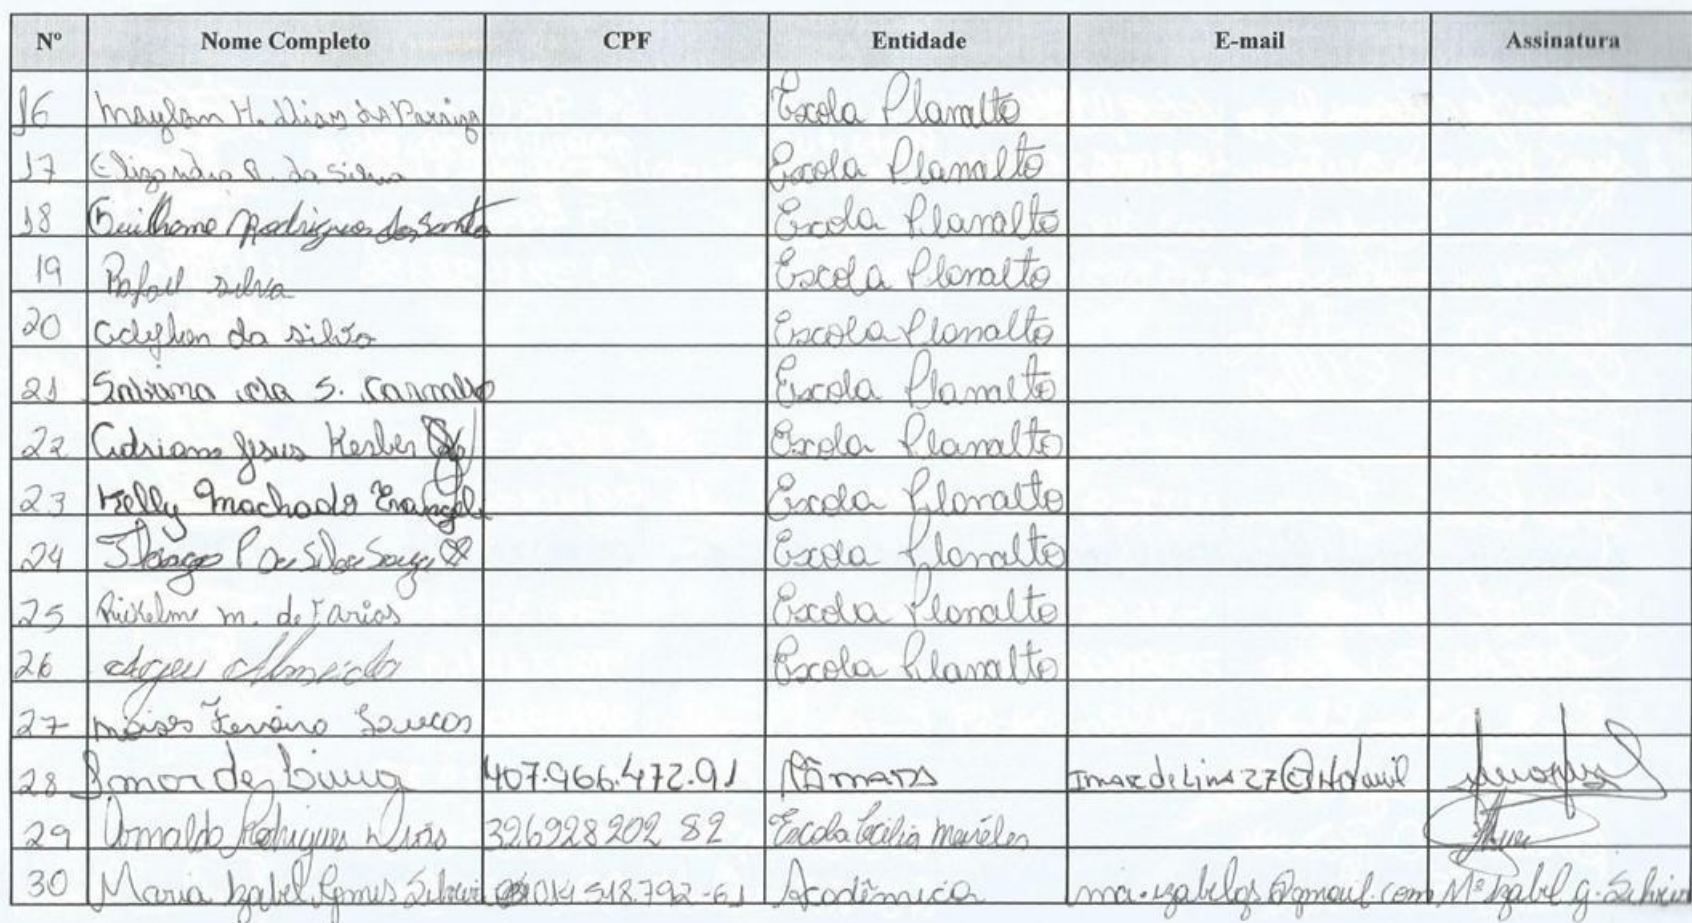 Nº Nome Completo CPF Entidade E-mail Assinatura
16 Maylon H. Dias Escola Planalto
17 Elizandra R. da Silva Escola Planalto
18 Guilherme Rodrigues dos Santos Escola Planalto
19 Rafael Silva Escola Planalto
20 da Silva Escola Planalto
21 Sabrina da S. Carvalho Escola Planalto
22 Adriano Jesus Kerber Escola Planalto
23 Kelly Machado Evangeli Escola Planalto
24 Thiago P. da Silva Souza Escola Planalto
25 Rickelme M. de Farias Escola Planalto
26 Almeida Escola Planalto
27 Moises
28 de Lima 407.966.472.91 Câmara
29 Rodrigues Dias 326928202 82 Escola Cecilia Meireles
30 Maria Izabel Gomes 014.512.792-61 Acadêmica Mª Izabel G.